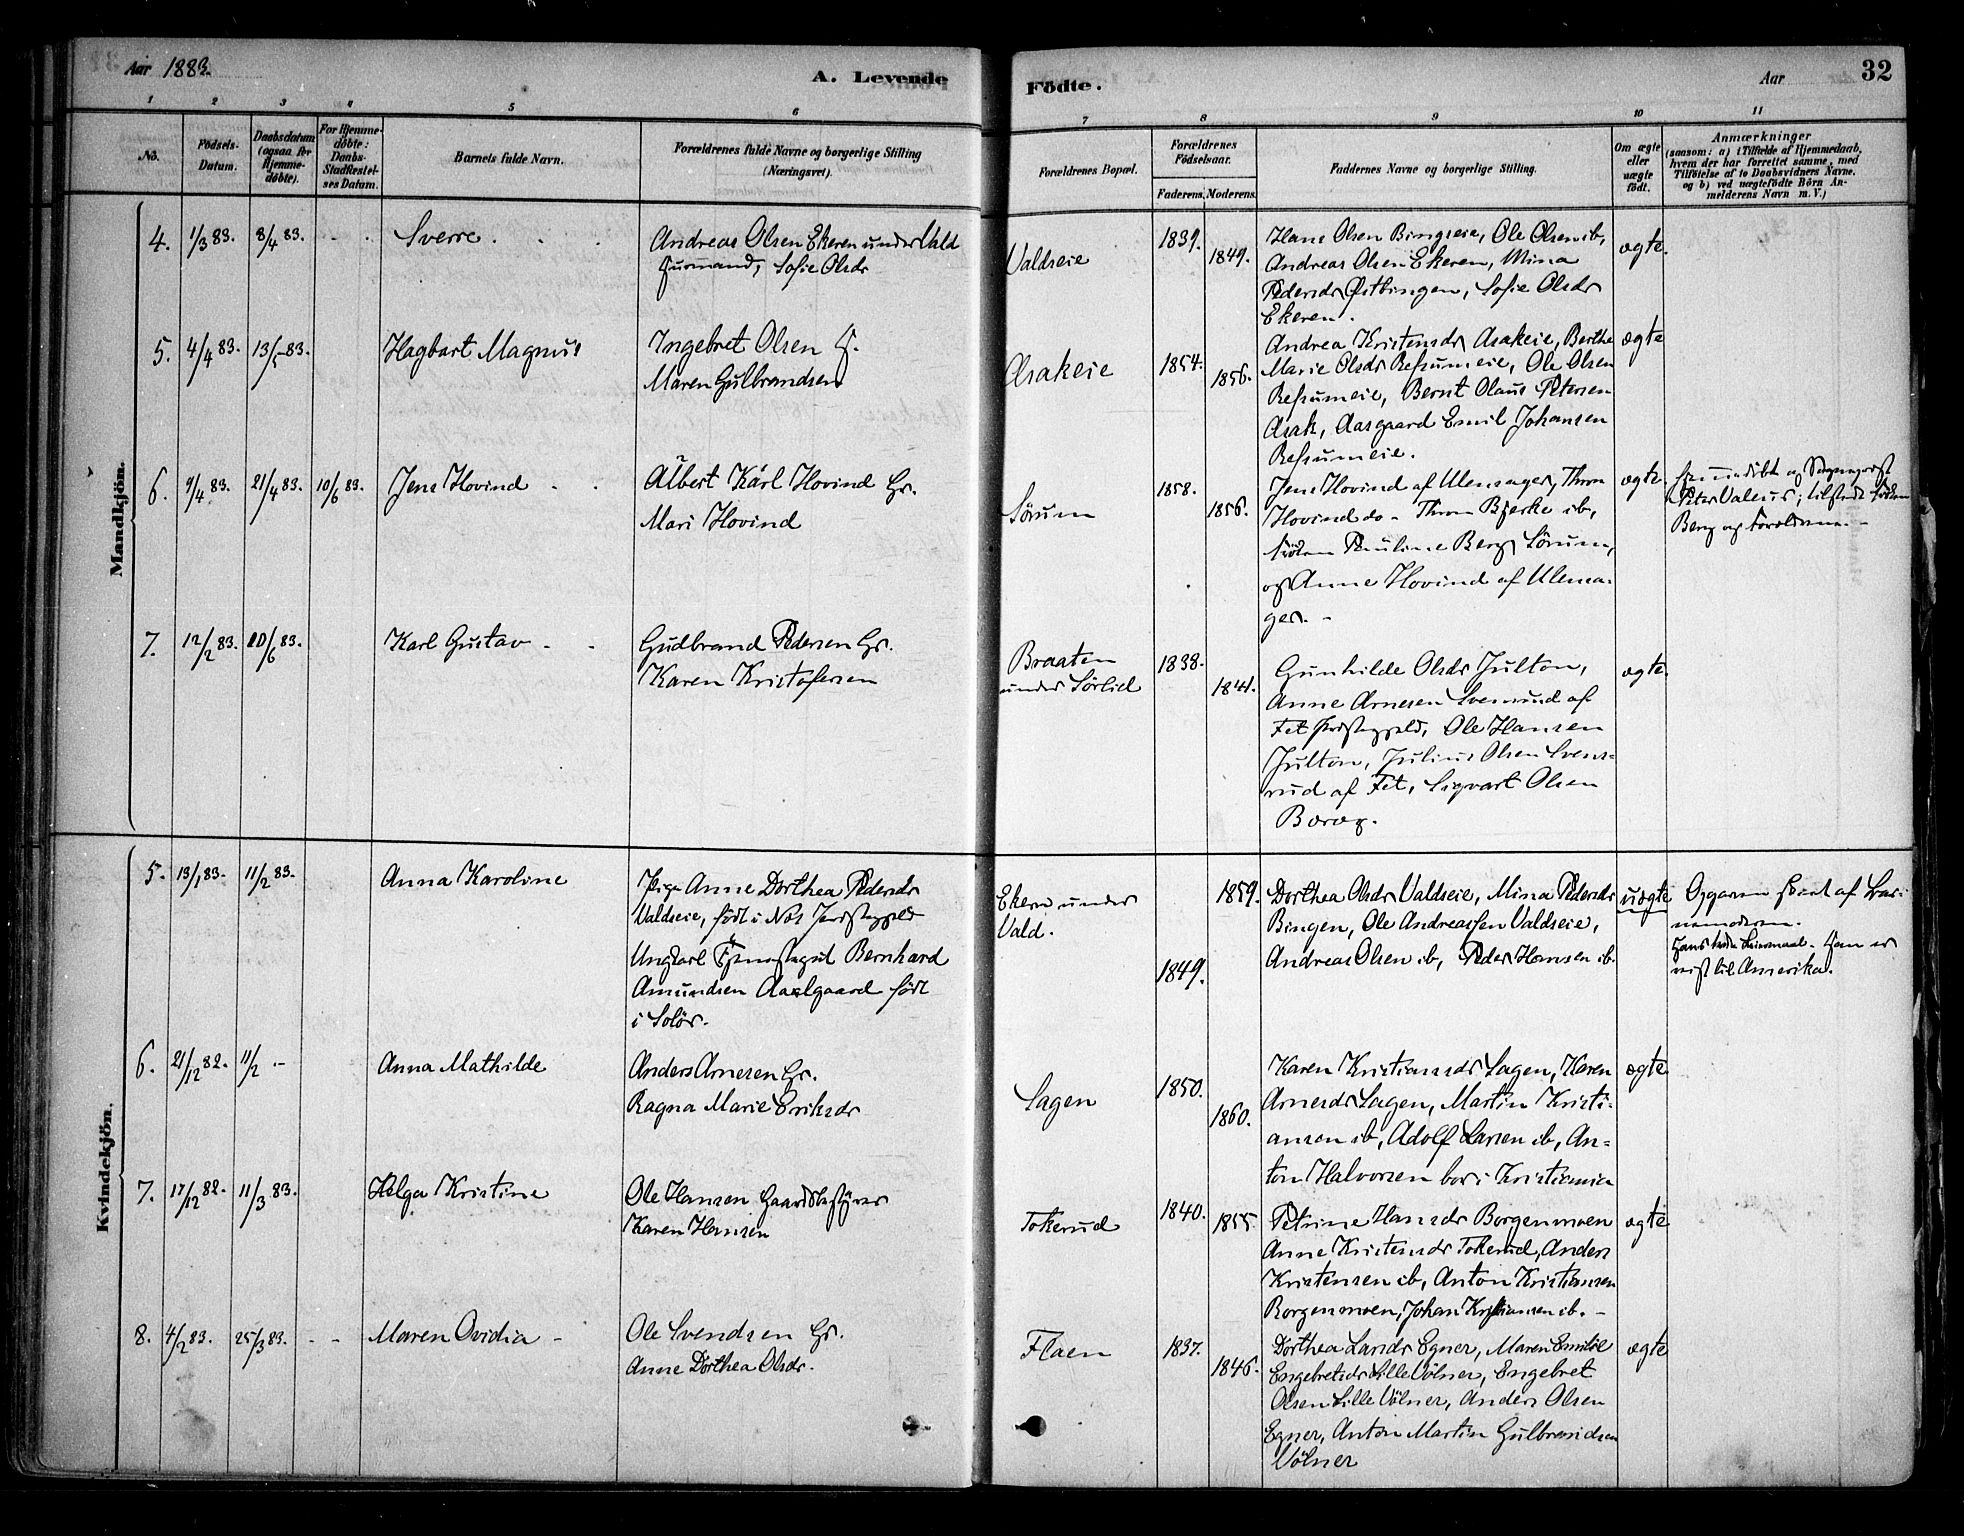 Aar 1883.
A. Levende
Födte.
Aar
32
1 2 3 4 5 6
7 8 9 10 11
No.
Födsels-
Datum.
Daabsdatum
(ogsaa for
Hjemme-
døbte).
For Hjemme-
døbte:
Daabs-
Stadfæstel-
ses Datum.
Barnets fulde Navn.
Forældrenes fulde Navne og borgerlige Stilling
(Næringsvei).
Forældrenes Bopæl.
Forældrenes
Fødselsaar.
Faderens. Moderens.
Faddernes Navne og borgerlige Stilling.
Om ægte
eller
uægte
født.
Anmærkninger
(saasom: a) i Tilfælde af Hjemmedaab,
hvem der har forrettet samme, med
Tilføielse af to Daabsvidners Navne,
og b) ved uægtefødte Börn An-
melderens Navn m. V.)
Mandkjön.
4. 1/3 83. 8/4 83. - - Sverre
Andreas Olsen Ekeren under Vald
Husmand, Sofie Olsdr
Valdseie
1839. 1849.
Hans Olsen Bingseie, Ole Olsen ib,
Andreas Olsen Ekeren, Mina
Pedersdr Østbingen, Sofie Olsdr
Ekeren.
ægte.
5. 4/4 83. 13/5 83.
Hagbart Magnus
Ingebret Olsen G.
Maren Gulbrandsen
Asakeie
1854. 1856.
Andrea Kristensdr Asakeie, Berthe
Marie Olsdr Refsumeie, Ole Olsen
Refsumeie, Bernt Olaus Petersen
Asak, Aasgaard Emil Johansen
Refsumeie.
ægte
6. 9/4 83. 21/4 83. 10/6 83. Jens Hovind
Albert Karl Hovind Gr.
Mari Hovind
Sörum
1858. 1856.
Jens Hovind af Ulensager, Thron
Hovind do - Thron Bjerke ib,
Fröken Pauline Berg, Sörum,
og Anne Hovind af Ulensa-
ger. -
ægte.
Peter Valeur; tilstede Fröken
Berg og Forældrene. -
7. 12/2 83. 10/6 83.
Karl Gustav
Gudbrand Pedersen Gr.
Karen Kristofersen
Braaten
under Sörlid
1838. 1841.
Gunhilde Olsdr Julton,
Anne Arnesen Svensrud af
Fet Præstegjeld, Ole Hansen
Julton, Julius Olsen Svens-
rud af Fet, Sigvart Olsen
ægte.
Kvindekjön.
5. 13/1 83. 11/2 83.
Anna Karoline
Pige Anne Dorthea Pedersdr
Valdseie, født i Nes Præstegjeld
Ungkarl Tjenestegut Bernhard
Amundsen Aaslgaard født
i Solör.
Ekern under
Vald.
1859.
1849.
Dorthea Olsdr Valdseie, Mina Pedersdr
Bingen, Ole Andreassen Valdseie,
Andreas Olsen ib, Peder Hansen ib.
uægte
Opgaven skeet af Bar-
nemoderen.
Hans andet Leiermaal. Han er
reist til Amerika.
6. 21/12 82. 11/2 -
Anna Mathilde
Anders Arnesen Gr.
Ragna Marie Eriksdr
Sagen
1850. 1860.
Karen Kristiansdr Sagen, Karen
Arnesdr Sagen, Martin Kristi-
ansen ib, Adolf Larsen ib, An-
ton Halvorsen bor i Kristiania
ægte.
7. 17/12 82. 11/3 83.
Helga Kristine
Ole Hansen Gaardsbestyrer
Karen Hansen
Tokerud
1840. 1855.
Petrine Hansdr Borgenmoen
Anne Kristensdr Tokerud, Anders
Kristensen ib, Anton Kristiansen
Borgenmoen, Johan Kristiansen ib. -
ægte
8. 4/2 83. 25/3 83. - - Maren Ovidia -
Ole Svendsen Gr.
Anne Dorthea Olsdr.
Flaen
1837. 1846.
Dorthea Larsdr Egner, Maren Emilie
Engebretsdr Lille Völner, Engebret
Olsen Lille Völner, Anders Olsen
Egner, Anton Martin Gulbrandsen
Völner
ægte